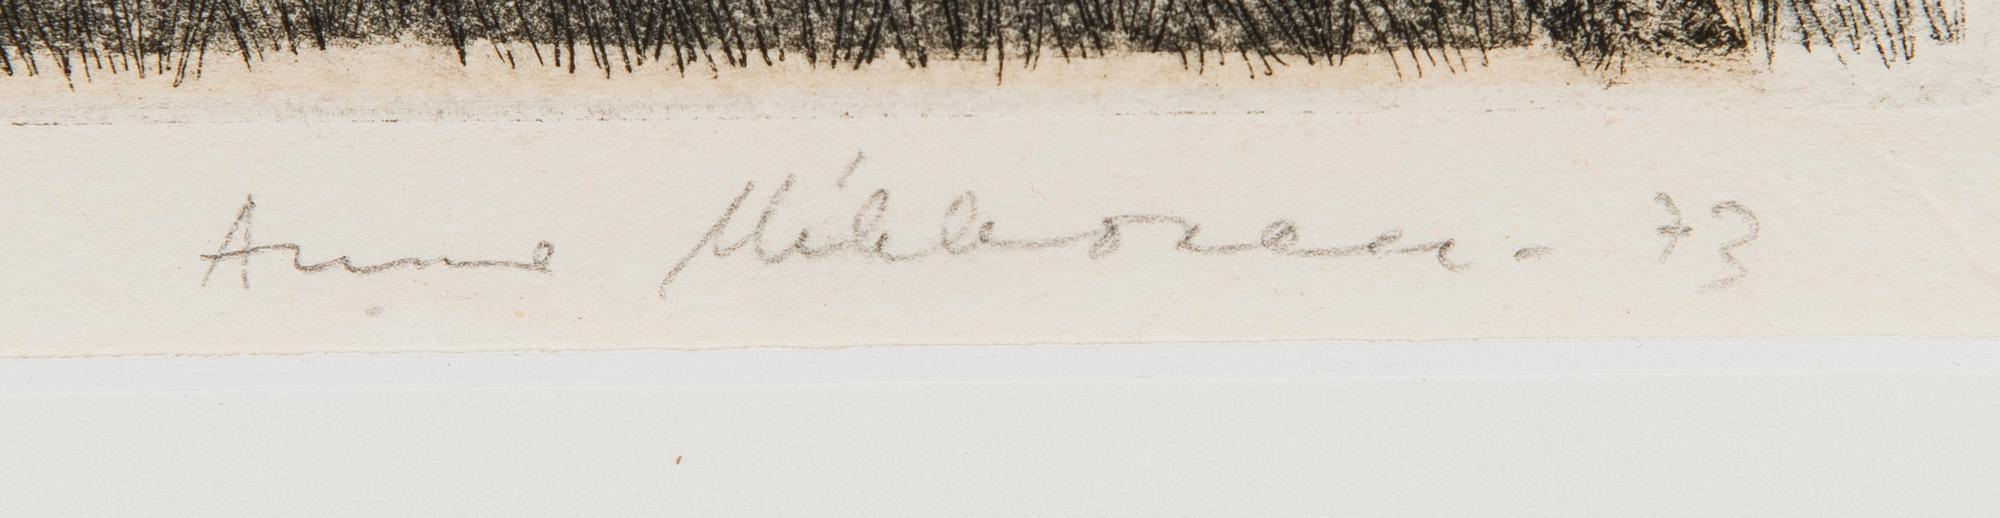 Anne Mikkonen - 73